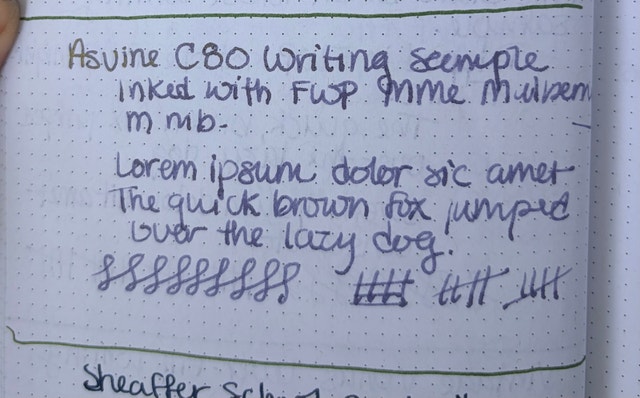 Asvine C80 Writing Sample
Inked with FWP Mme Mulsem
m nib-
Lorem ipsum dolor sic amet
The quick brown fox jumped
over the lazy dog.
Sheaffer School